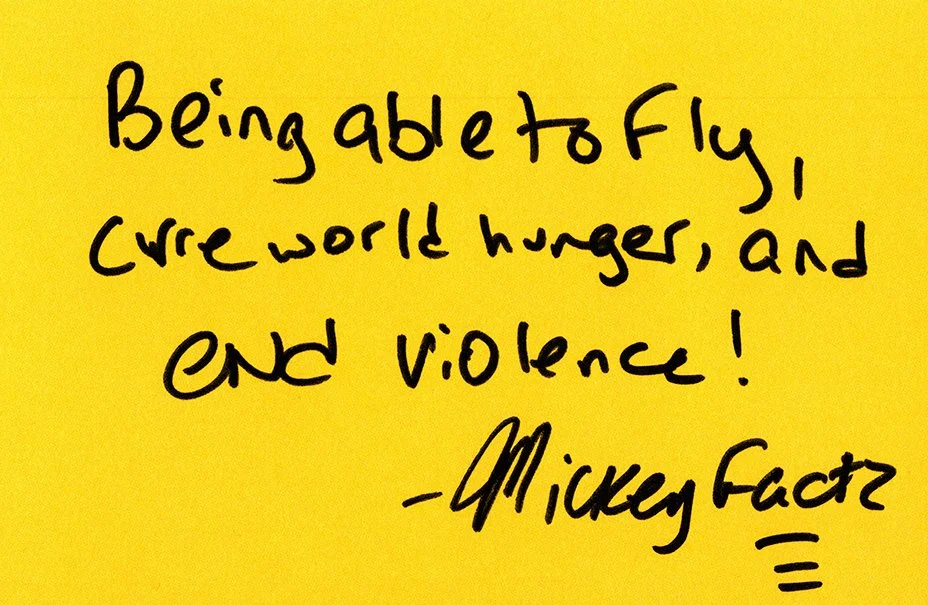 Being able to Fly,
cure world hunger, and
end violence!
-Mickey Factz